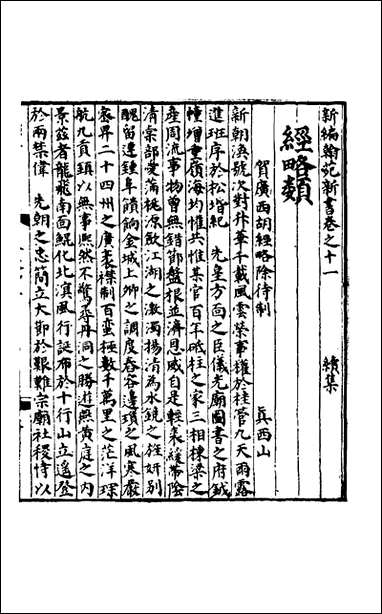 新編翰苑新書卷之十一　續集
經略類
賀廣西胡經略除待制　真西山
新朝渙號次對升華千載風雲榮事權於桂管九天雨露
進班序於松堦紀　先皇方面之臣儀先廟圖書之府鉞
幢增重嶺海均惟共惟某官百年砥柱之家三相棟梁之
產周流事物曾無錯節盤根並濟恩威自是輕裘緩帶陰
清宗部愛滿桃源飲江湖之激濁揚清為水鏡之姓妍別
醜留邊鍾阜饋餉金城上卿之調度舂容邊瑣之風寒嚴
密畀二十四州之廣袤襟制百蠻極數千萬里之茫洋琛
航九貢鎮以無事熙然不驚丹洞之勝遊燕黃庭之內
景茲者龍飛南面鯤化北溟風行誕布於十行山立遙登
於兩禁偉　先朝之忠簡立大節於艱難宗廟社稷恃以